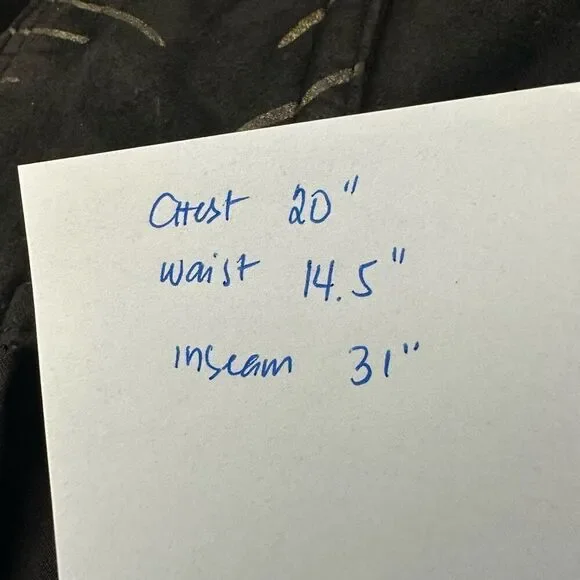 Chest 20"
waist 14.5"
inseam 31"